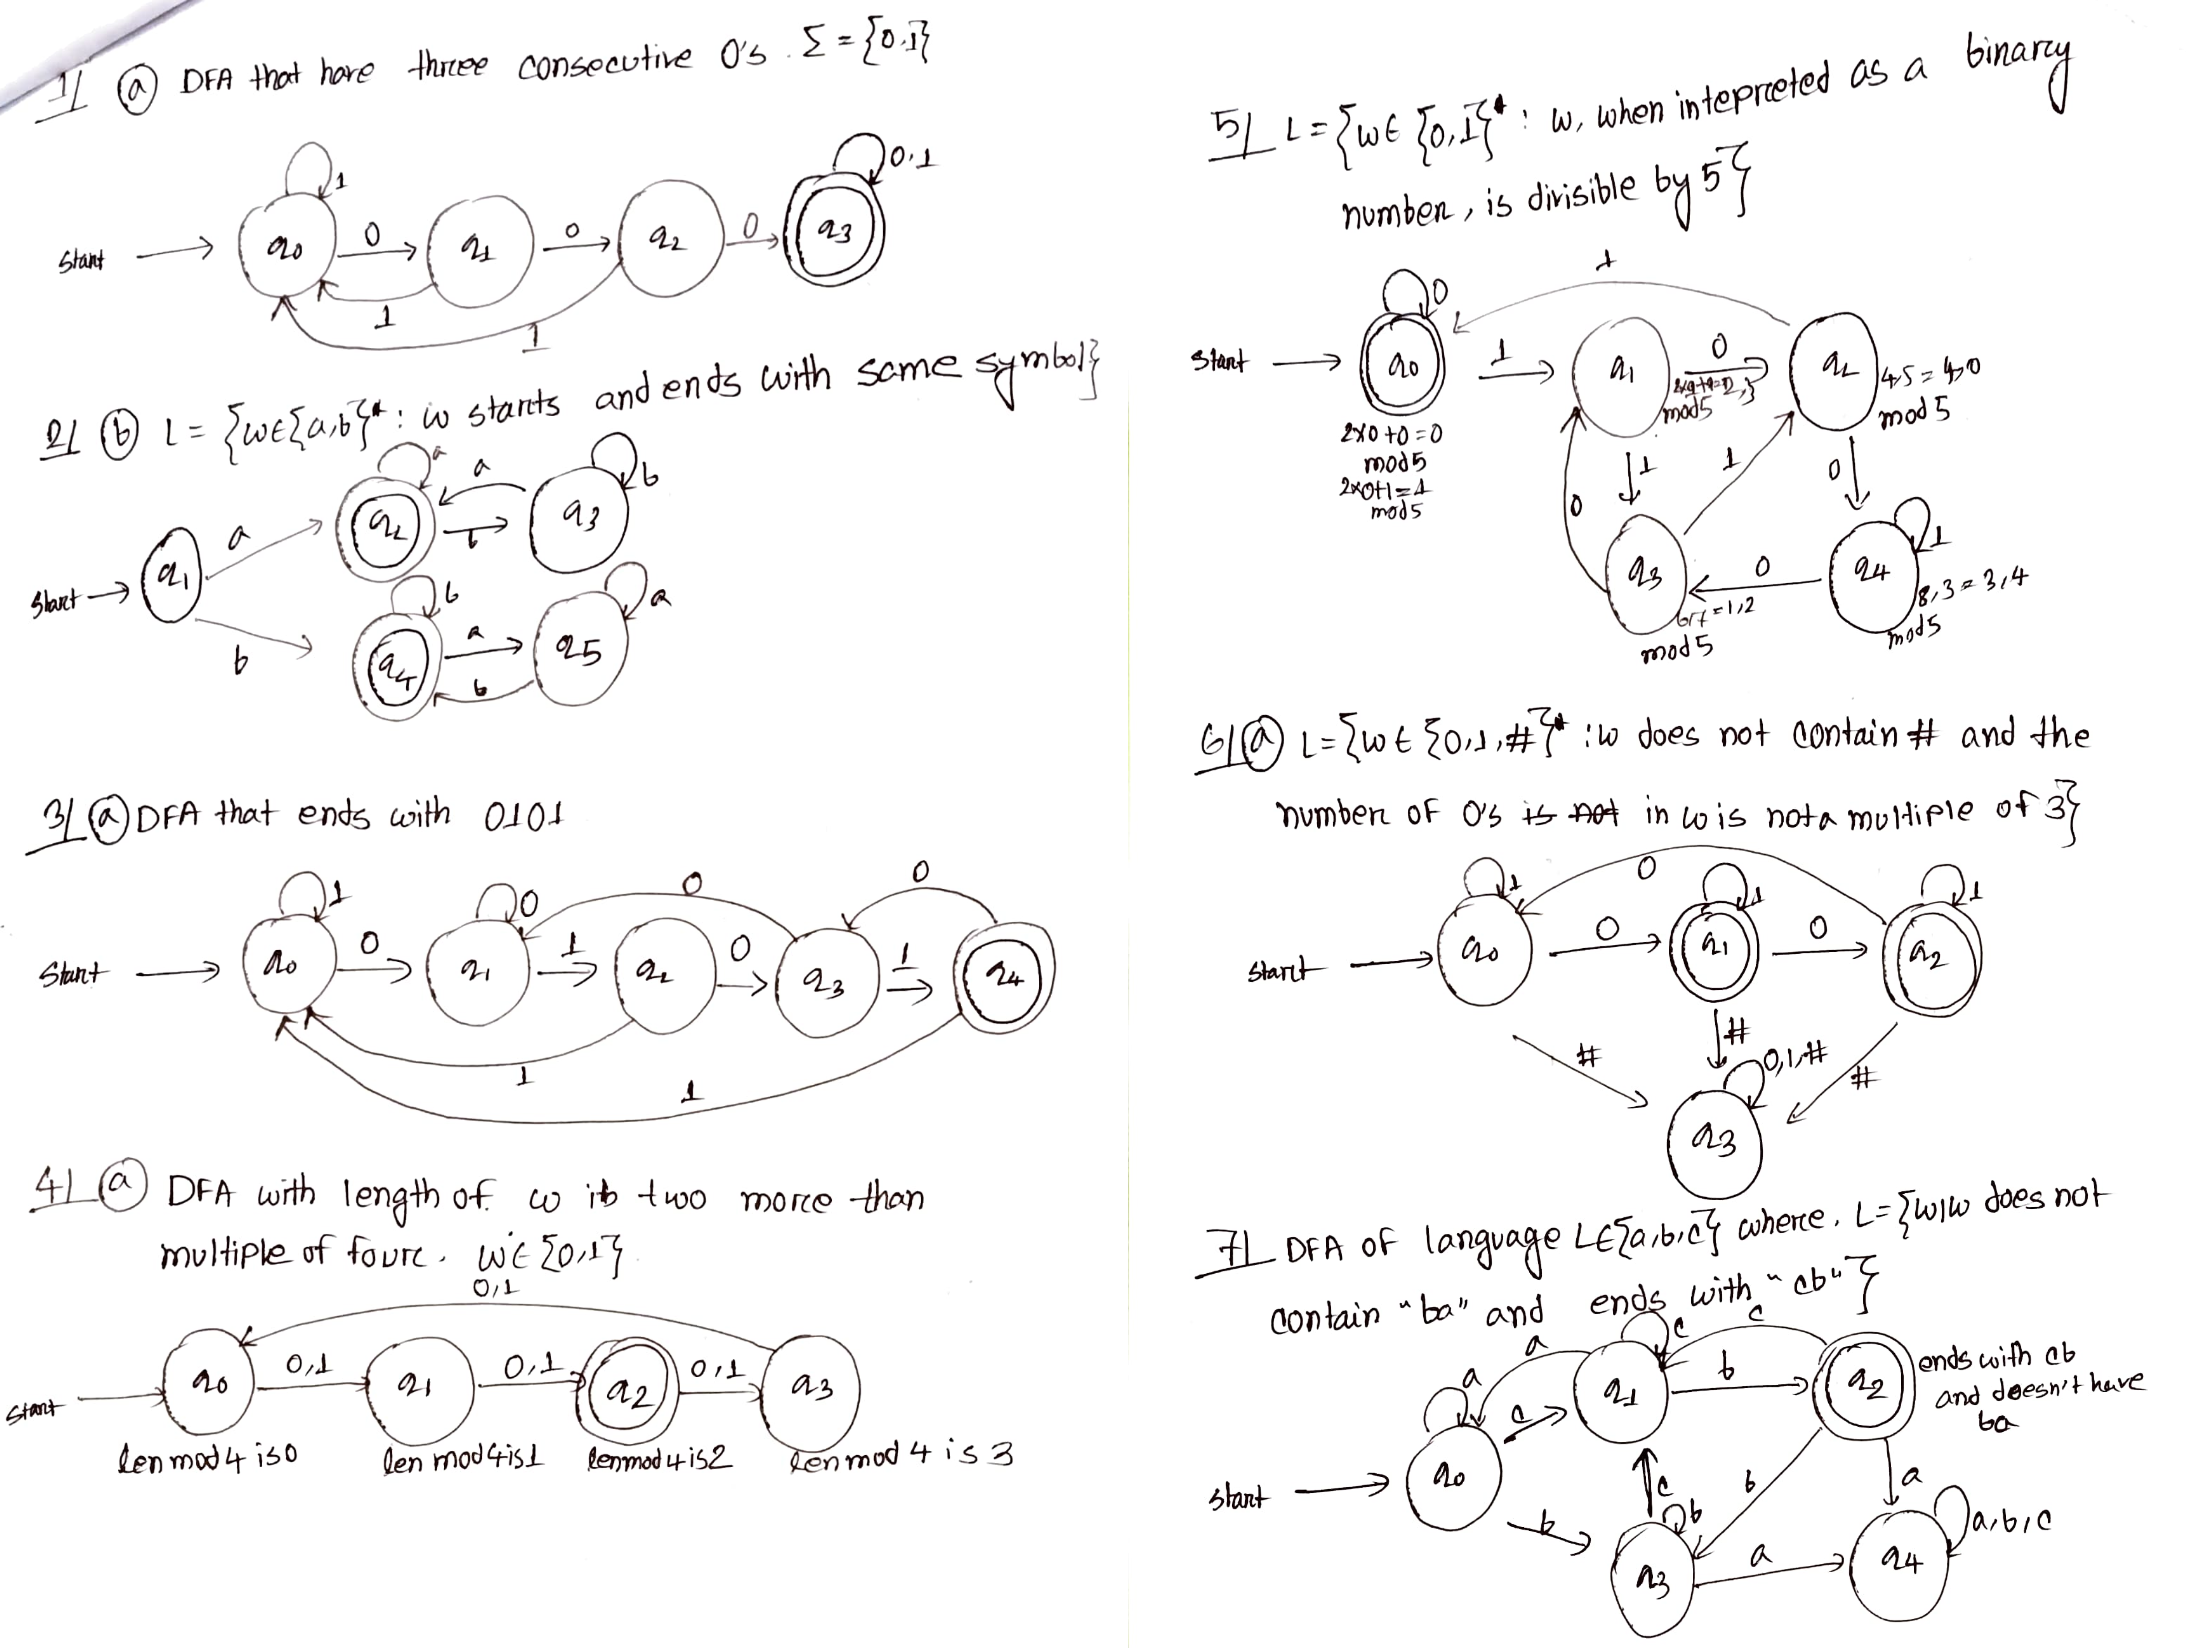 1/ (a) DFA that have three consecutive 0's. Σ = {0,1}
1
0,1
Start
q0
0
q1
0
q2
0
q3
1
1
2/ (b) L = {w∈{a,b}* : w starts and ends with same symbol}
a
a
b
q2
b
q3
a
Start
q1
b
b
a
q4
a
q5
b
3/ (a) DFA that ends with 0101
1
0
0
0
Start
q0
0
q1
1
q2
0
q3
1
q4
1
1
4/ (a) DFA with length of w is two more than
multiple of four. w∈{0,1}
0,1
Start
q0
0,1
q1
0,1
q2
0,1
q3
len mod 4 is 0
len mod 4 is 1
len mod 4 is 2
len mod 4 is 3
5/ L = {w∈{0,1}* : w, when intepreted as a binary
number, is divisible by 5}
1
0
Start
q0
1
q1
0
q2
mod 5
4,5 = 4,0
mod 5
2x0+0=0
mod 5
2x0+1=1
mod 5
1
1
0
0
1
q3
0
q4
6,7=1,2
mod 5
8,3=3,4
mod 5
6/ (a) L={w∈{0,1,#}* : w does not contain # and the
number of 0's is not in w is not a multiple of 3}
1
0
1
1
Start
q0
0
q1
0
q2
#
#
0,1,#
#
q3
7/ DFA of language L∈{a,b,c} where, L={w|w does not
contain "ba" and ends with "cb"}
a
c
c
a
c
q1
b
q2
ends with cb
and doesn't have
ba
Start
q0
b
c
b
b
a
a,b,c
q3
a
q4